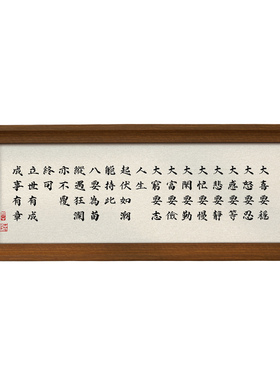 大喜要穩
大怒要忍
大惑要等
大悲要靜
大忙要慢
大閑要勤
大富要儉
大窮要志
人生
起伏如潮
能持此
八要為
縱遇狂瀾
亦不覆
終可
立世有成
成事有章